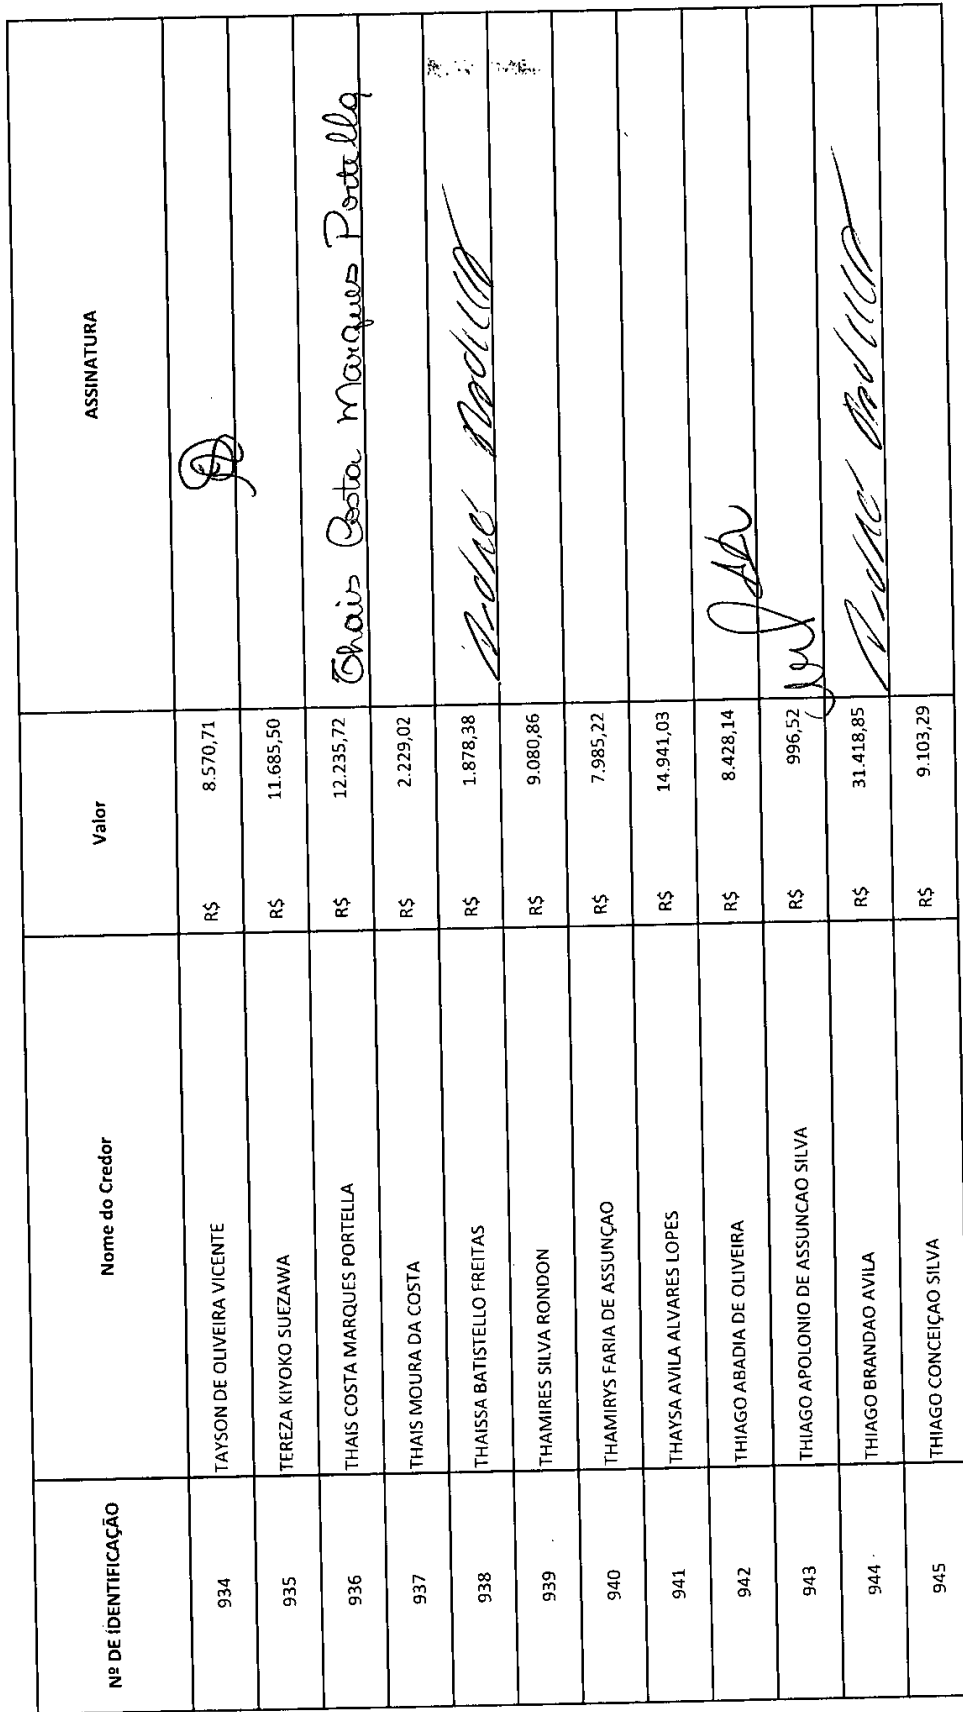 Nº DE IDENTIFICAÇÃO Nome do Credor Valor ASSINATURA
934 TAYSON DE OLIVEIRA VICENTE R$ 8.570,71
935 TEREZA KIYOKO SUEZAWA R$ 11.685,50
936 THAIS COSTA MARQUES PORTELLA R$ 12.235,72 Thais Costa Marques Portella
937 THAIS MOURA DA COSTA R$ 2.229,02
938 THAISSA BATISTELLO FREITAS R$ 1.878,38
939 THAMIRES SILVA RONDON R$ 9.080,86
940 THAMIRYS FARIA DE ASSUNÇAO R$ 7.985,22
941 THAYSA AVILA ALVARES LOPES R$ 14.941,03
942 THIAGO ABADIA DE OLIVEIRA R$ 8.428,14
943 THIAGO APOLONIO DE ASSUNCAO SILVA R$ 996,52
944 THIAGO BRANDAO AVILA R$ 31.418,85
945 THIAGO CONCEIÇAO SILVA R$ 9.103,29